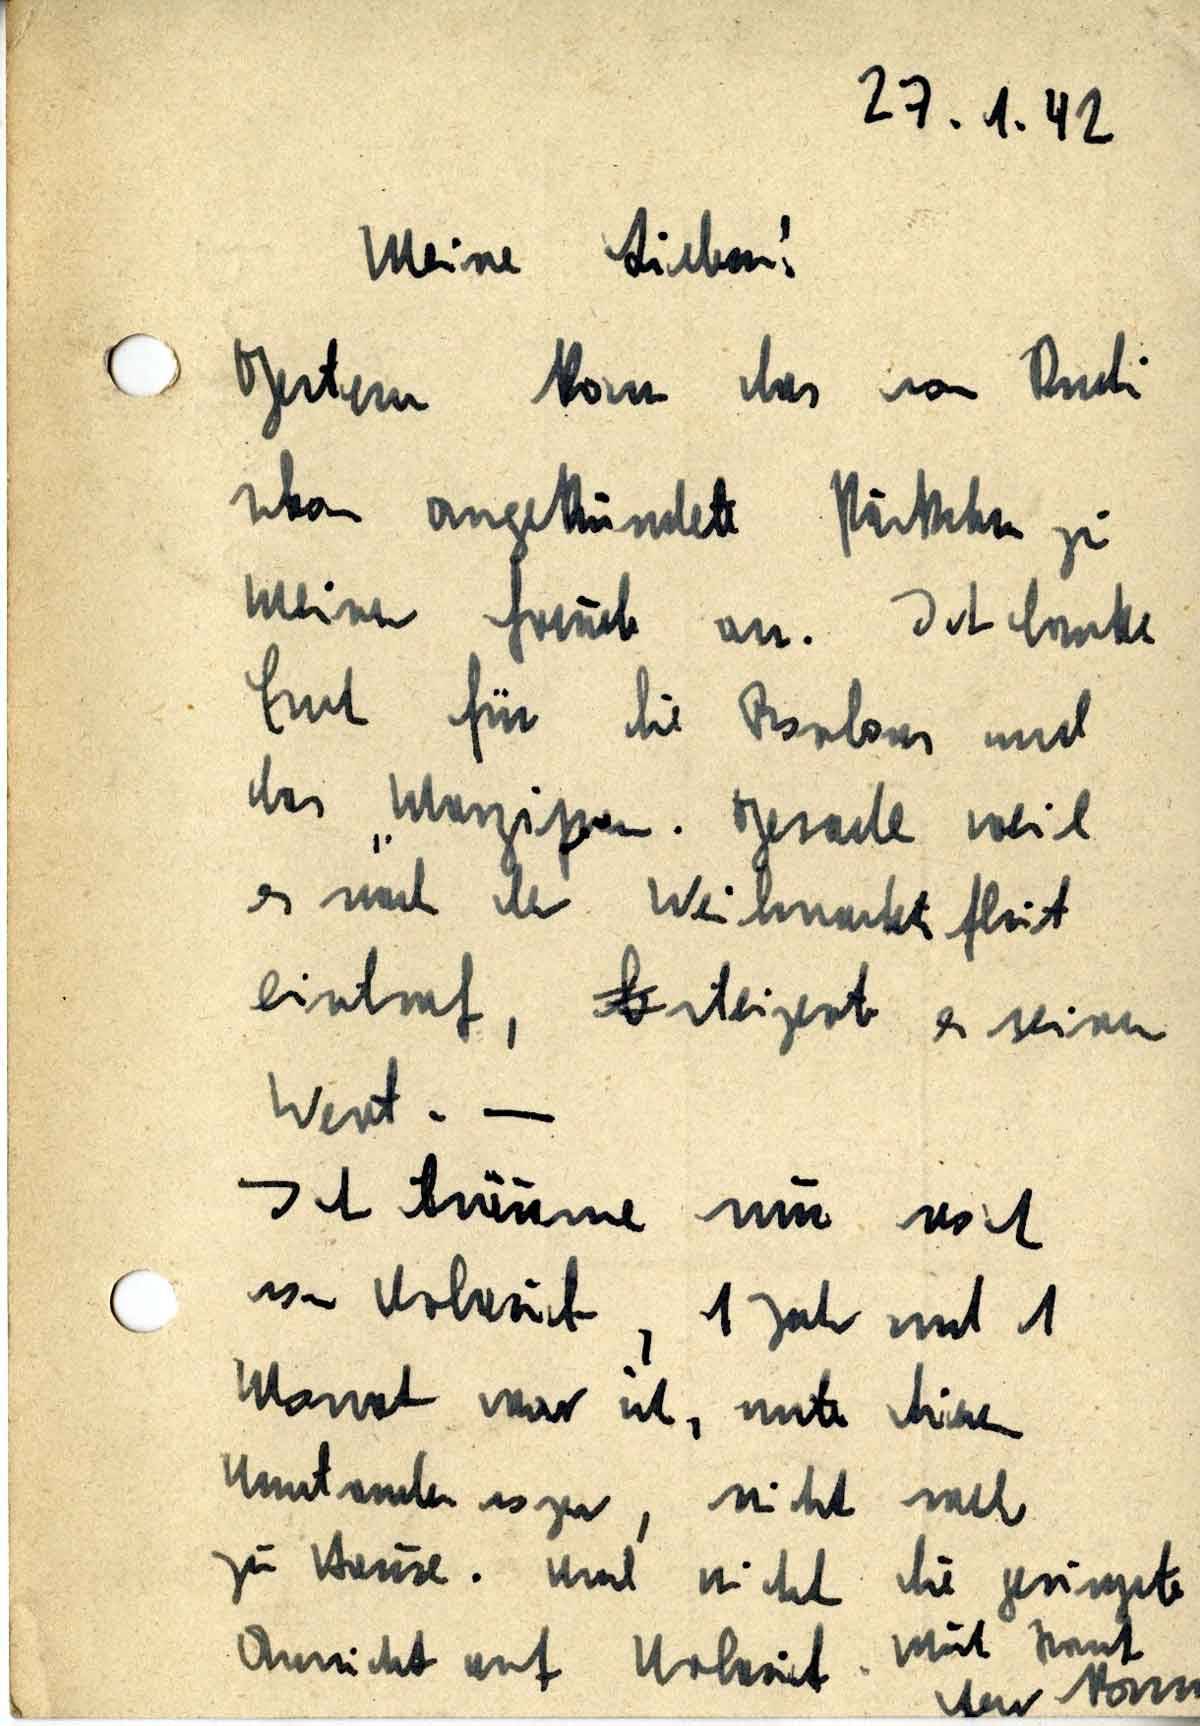 27.1.42
Meine Lieben!
Gestern kam das von Rudi
schon angekündete Päckchen zu
meiner Freude an. Ich danke
Euch für die Bonbons und
das „Marzipan. Gerade weil
es nach der Weihnachtsflut
eintraf, steigert es seinen
Wert. —
Ich träume nur noch
von Urlaub, 1 Jahr und 1
Monat war ich, unter diesen
Umständen sogar, nicht mehr
zu Hause. Und nicht die geringste
Aussicht auf Urlaub.